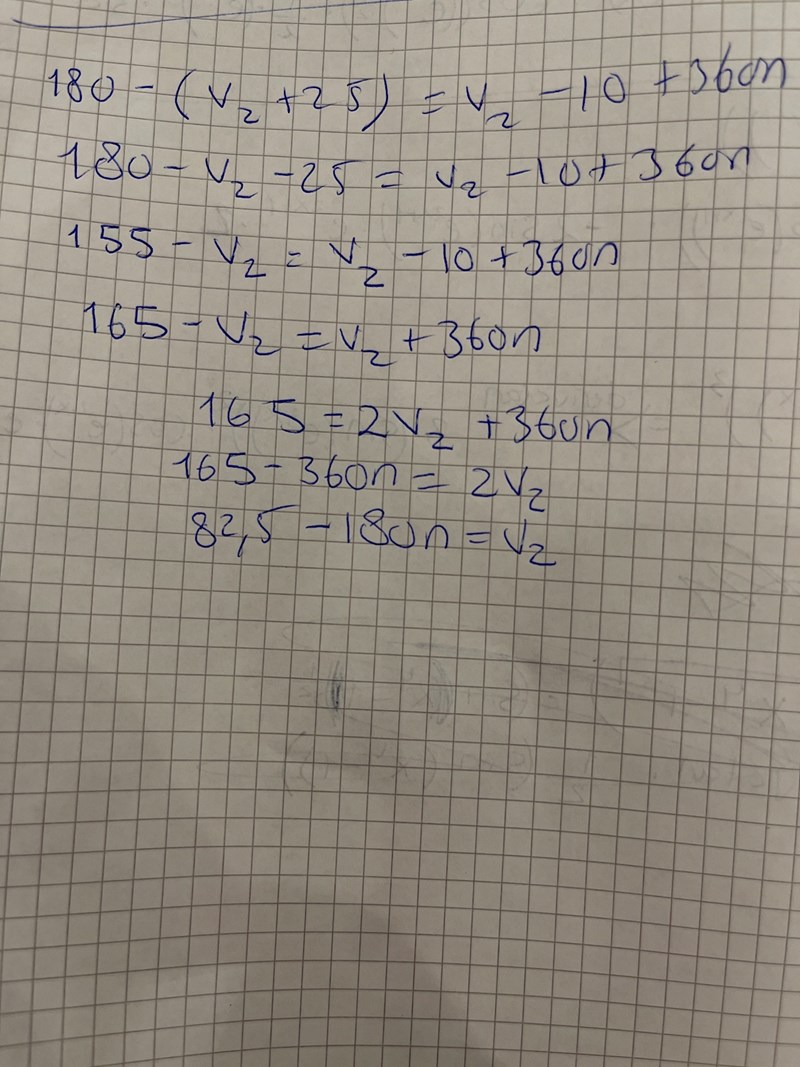 180 - (v₂ + 25) = v₂ - 10 + 360n
180 - v₂ - 25 = v₂ - 10 + 360n
155 - v₂ = v₂ - 10 + 360n
165 - v₂ = v₂ + 360n
165 = 2v₂ + 360n
165 - 360n = 2v₂
82,5 - 180n = v₂